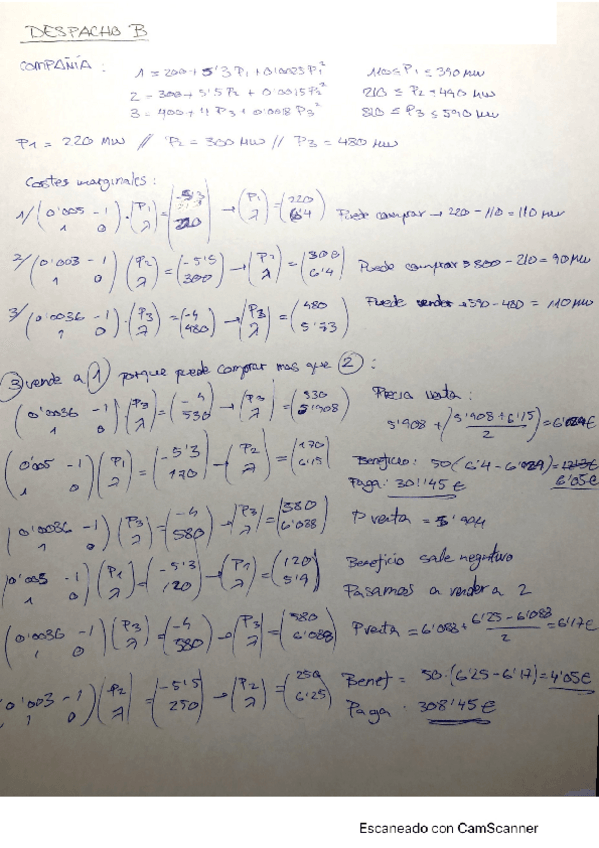 DESPACHO B
COMPAÑÍA :
1 = 200 + 5'3 P1 + 0'0025 P1² 110 ≤ P1 ≤ 390 MW
2 = 300 + 5'5 P2 + 0'0015 P2² 210 ≤ P2 ≤ 490 MW
3 = 400 + 4 P3 + 0'0018 P3² ≤ P3 ≤ 590 MW
P1 = 220 MW // P2 = 300 MW // P3 = 480 MW
Costes marginales :
1/ (0'005 -1; 1 0) · (P1; λ) = (-5'3; 220) → (P1; λ) = (220; 6'4) Puede comprar → 220 - 110 = 110 MW
2/ (0'003 -1; 1 0) (P2; λ) = (-5'5; 300) → (P2; λ) = (300; 6'4) Puede comprar → 300 - 210 = 90 MW
3/ (0'0036 -1; 1 0) · (P3; λ) = (-4; 480) → (P3; λ) = (480; 5'73) Puede vender → 590 - 480 = 110 MW
3 vende a 1 porque puede comprar mas que 2 :
(0'0036 -1; 1 0) (P3; λ) = (-4; 530) → (P3; λ) = (530; 5'908) Precio venta :
5'908 + (5'908 + 6'15 / 2) = 6'029€
(0'005 -1; 1 0) (P1; λ) = (-5'3; 170) → (P2; λ) = (170; 6'15) Beneficio : 50 (6'4 - 6'029) =
6'05€
Paga : 301'45€
(0'0036 -1; 1 0) (P3; λ) = (-4; 580) → (P3; λ) = (580; 6'088) P venta = 5'994
(0'005 -1; 1 0) (P1; λ) = (-5'3; 120) → (P1; λ) = (120; 5'9) Beneficio sale negativo
Pasamos a vender a 2
(0'0036 -1; 1 0) (P3; λ) = (-4; 580) → (P3; λ) = (580; 6'088) P venta = 6'088 + 6'25 - 6'088 / 2 = 6'17€
(0'003 -1; 1 0) (P2; λ) = (-5'5; 250) → (P2; λ) = (250; 6'25) Benef = 50 · (6'25 - 6'17) = 4'05€
Paga · 308'45€
Escaneado con CamScanner